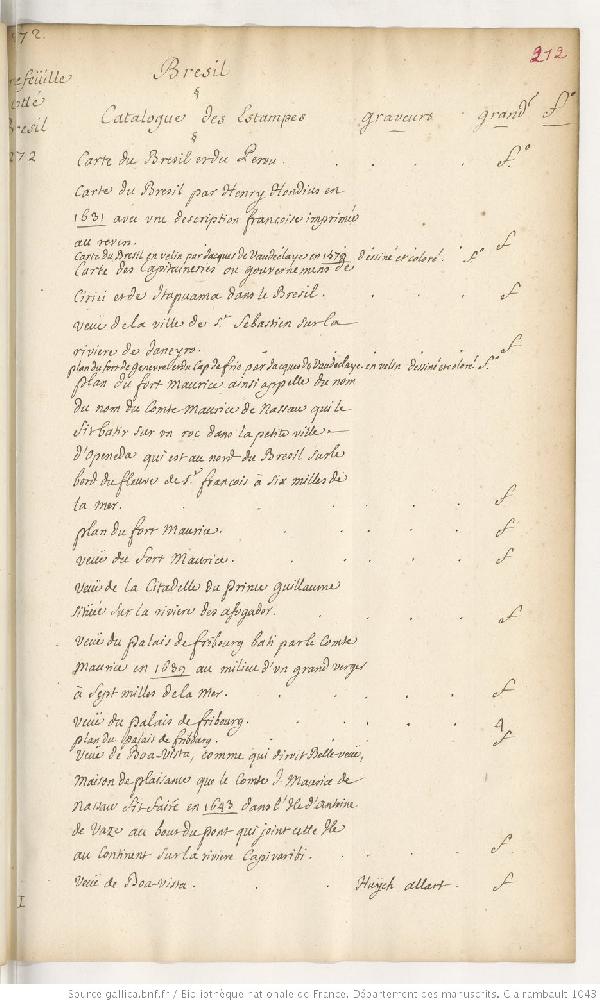 272.
212
Bresil
refeüille
cotté
Bresil
272
§
Catalogue des Estampes graveurs grandr fo
§
Carte du Bresil et du Perou. fo
Carte du Bresil par Henry Hondius en
1631 avec vne description françoise imprimée
au revers. f
Carte du Bresil en velin par Jacques de Vaudeclaye en 1579 déssiné et coloré. fo
Carte des Capitaineries ou gouvernemens de
Ciriii et de Itapuama dans le Bresil. f
Veüe de la ville de St Sebastien sur la
riviere de Janeyro. f
plan du fort de genevre et du Cap de frio par Jacques de Vaudeclaye en velin déssiné et coloré fo
plan du fort Maurice ainsi appellé du nom
du nom du Comte Maurice de Nassau qui le
fit batir sur vn roc dans la petite ville
d'Openeda qui est au nord du Bresil sur le
bord du fleuve de St francois à six milles de
la mer. f
plan du fort Maurice. f
Veüe du fort Maurice. f
Veüe de la Citadelle du Prince guillaume
sitüée sur la riviere des afogador. f
Veüe du palais de fribourg bati par le Comte
Maurice en 1639 au milieu d'vn grand verger
à sept milles de la mer. f
Veüe du palais de fribourg. 4
plan du palais de fribourg. f
Veüe de Boa-Vista, comme qui diroit Belle veüe,
Maison de plaisance que le Comte J. Maurice de
Nassau fit faire en 1643 dans l'Ile d'antoine
de Vaze au bout du pont qui joint cette Ile
au Continent sur la riviere Capivaribi. f
Veüe de Boa-Vista. Huych allart. f
I
Source gallica.bnf.fr / Bibliothèque nationale de France. Département des manuscrits. Clairambault 1043